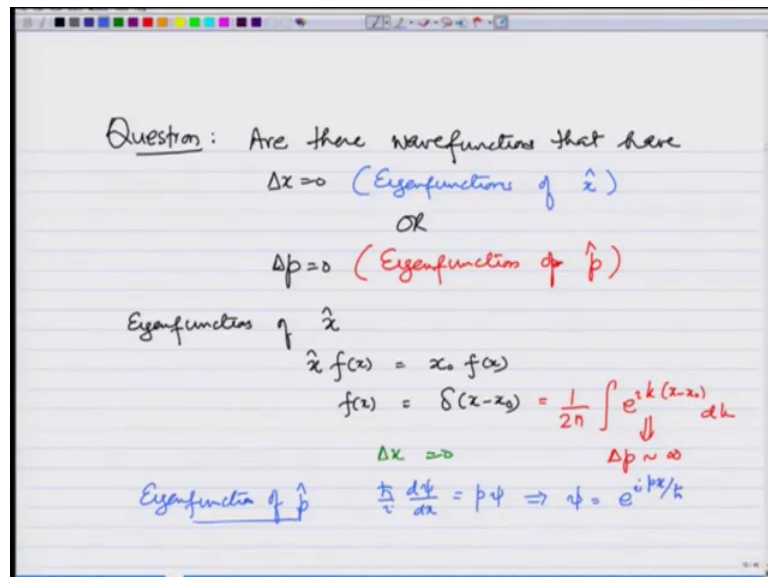 Question: Are there wavefunctions that have
Δx=0 (Eigenfunctions of x̂)
OR
Δp=0 (Eigenfunction of p̂)
Eigenfunctions of x̂
x̂ f(x) = x₀ f(x)
f(x) = δ(x-x₀) = 1/2π ∫ e^{ik(x-x₀)} dk
⇓
Δx =0 Δp ~ ∞
Eigenfunction of p̂ ħ/i dψ/dx = pψ ⇒ ψ = e^{ipx/ħ}